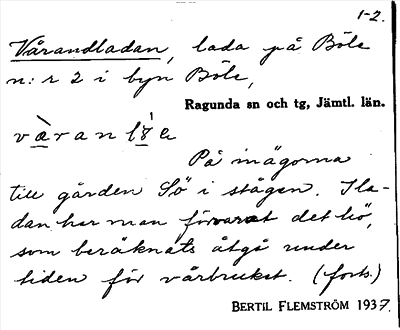 1-2.
Vårandladan, lada på Böle
n:r 2 i byn Böle,
Ragunda sn och tg, Jämtl. län.
På inägorna
till gården Sö i stägen. I la-
dan har man förvarat det hö,
som beräknats åtgå under
tiden för vårbruket. (forts.)
BERTIL FLEMSTRÖM 1937.